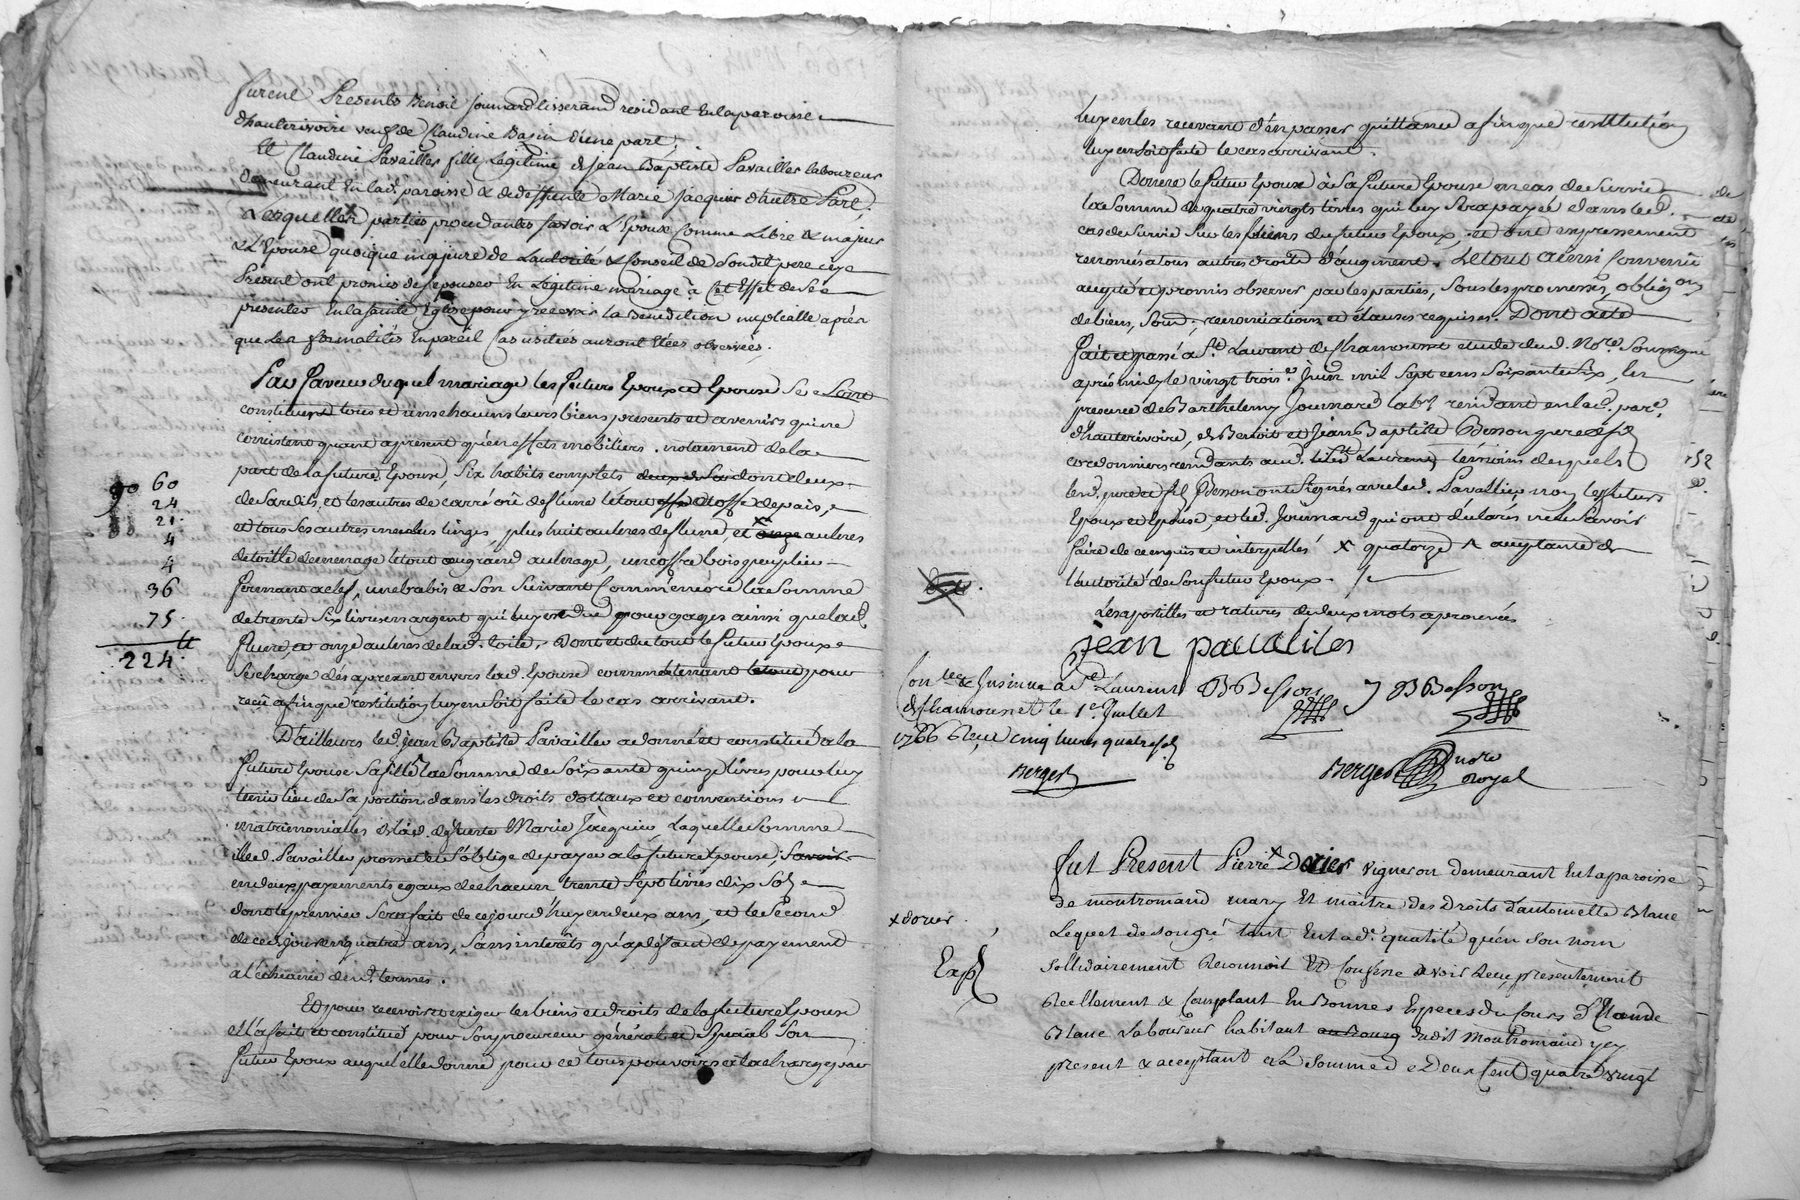 furent Presents Benoit Joumard tisserand residant en la paroisse
d'hauterivoire veuf de Claudine Bazin d'une part,
Et Claudine Pavailler fille Legitime de Jean Baptiste Pavailler laboureur
demeurant en lad. paroisse & de deffunte Marie Jacquier d'autre Part,
Lesquelles parties procedantes savoir L'Epoux Comme Libre & majeur
& L'Epouse quoique majeure de Lautorité & Conseil de Sondit pere icy
Present ont promis de s'epouser En Legitime mariage à Cet Effet de Se
présenter En la sainte Eglise pour y recevoir la Bénédiction nuptialle après
que Les formalités En pareil Cas usitées auront Etées observées.
En faveur duquel mariage les futurs Epoux et Epouse Se Sont
constitués tous et uns chacuns leurs biens présents et avenirs qui ne
consistent quant apresent qu'en effets mobiliers. notament de la
part de la future Epouse, Six habits complets dont deux
de Sardis, et les autres de carré ou de fleuret le tout Etoffe de pais,
et tous Ses autres menus linges, plus huit aulnes de fleuret, et onze aulnes
de toille de menage le tout au grand aulnage, un coffre bois peuplier
fermant a clef, une babis & Son Suivant Comme encore la Somme
de trente Six livres en argent qui luy est due pour gages ainsi que lad.
fleuret, et onze aulnes de lad. toile, Dont et du tout le futur Epoux
Se charge dés apresent envers lad. Epouse comme le tenant le tout pour
reçu afin que restitution luy en Soit faite le cas arrivant.
D'ailleurs led. Jean Baptiste Pavailler a donné et constitué a la
future Epouse Sa fille la Somme de Soixante quinze livres pour luy
tenir lieu de Sa portion dans les droits dottaux et conventions
matrimonialles de lad. deffunte Marie Jacquier, Laquelle Somme
led. Pavailler promet et S'oblige de payer a la future Epouse, Savoir
en deux payements egaux de chacun trente Sept livres dix Sols
dont le premier Sera fait de ce jourd'huy en deux ans, et le Second
de ced. jour en quatre ans, Sans interêts qu'a défaut de payement
a l'échéance desd. termes.
Et pour recevoir et exiger les biens et droits de la future Epouse
Ell'a fait et constitué pour Son procureur général et Spécial Son
futur Epoux auquel elle donne pour ce tous pouvoirs a la charge par
90 60
24
21.
4
4
36
75.
224.tt
luy en les recevant d'en passer quittance afin que restitution
luy en Soit faite le cas arrivant.
Donne le futur Epoux à Sa future Epouse en cas de Survie
la Somme de quatre vingts livres qui luy Sera payée dans led.
cas de Survie Sur les biens du futur Epoux, et ont expressement
renoncés a tous autres droits d'augment. Le tout ainsi Convenu
accepté et promis observer par les parties, Sous les promesses, oblig.on
de biens, Soum, renonciations et clauses requises. Dont acte
fait et passé a St. Laurent de Chamousset etude dud. No.re Soussigné
après midy le vingt trois.e Juin mil Sept cens Soixante Six, En
presence de Barthelemy Joumard lab.r residant en lad. par.e
d'hauterivoire, de Benoit et Jean Baptiste Besson pere et fils
cordonniers residants aud. lieu St Laurent témoins desquels
lesd. pere et fils Besson ont Signés avec led. Pavallier non les futurs
Epoux et Epouse, et led. Joumard qui ont declarés ne le Savoir
faire de ce enquis et interpellés x quatorze ^ acceptante de
l'autorité de Son futur Epoux.
Les apostilles et ratures de deux mots aprouvés
Jean pavailles
BBesson J B Besson
Con.lée & Insinué a St. Laurent
de Chamousset le 1.er Juillet
1766 Reçu cinq livres quatre sols
Berger
Berger no.re
Royal
fut Present Pierre x Dorier vigneron demeurant En la paroisse
de montromand mary Et maitre des Droits d'antoinette Blanc
Lequel de son gré tant En lad.e qualité qu'en son nom
sollidairement Reconnoit Et Confesse avoir Reçu presentement
Reellement & Comptant En Bonnes Especes du Cours De Claude
Blanc Laboureur habitant au Bourg dudit Montromand icy
present & acceptant La Somme de Deux Cent quatre vingt
x dorier
Exp.